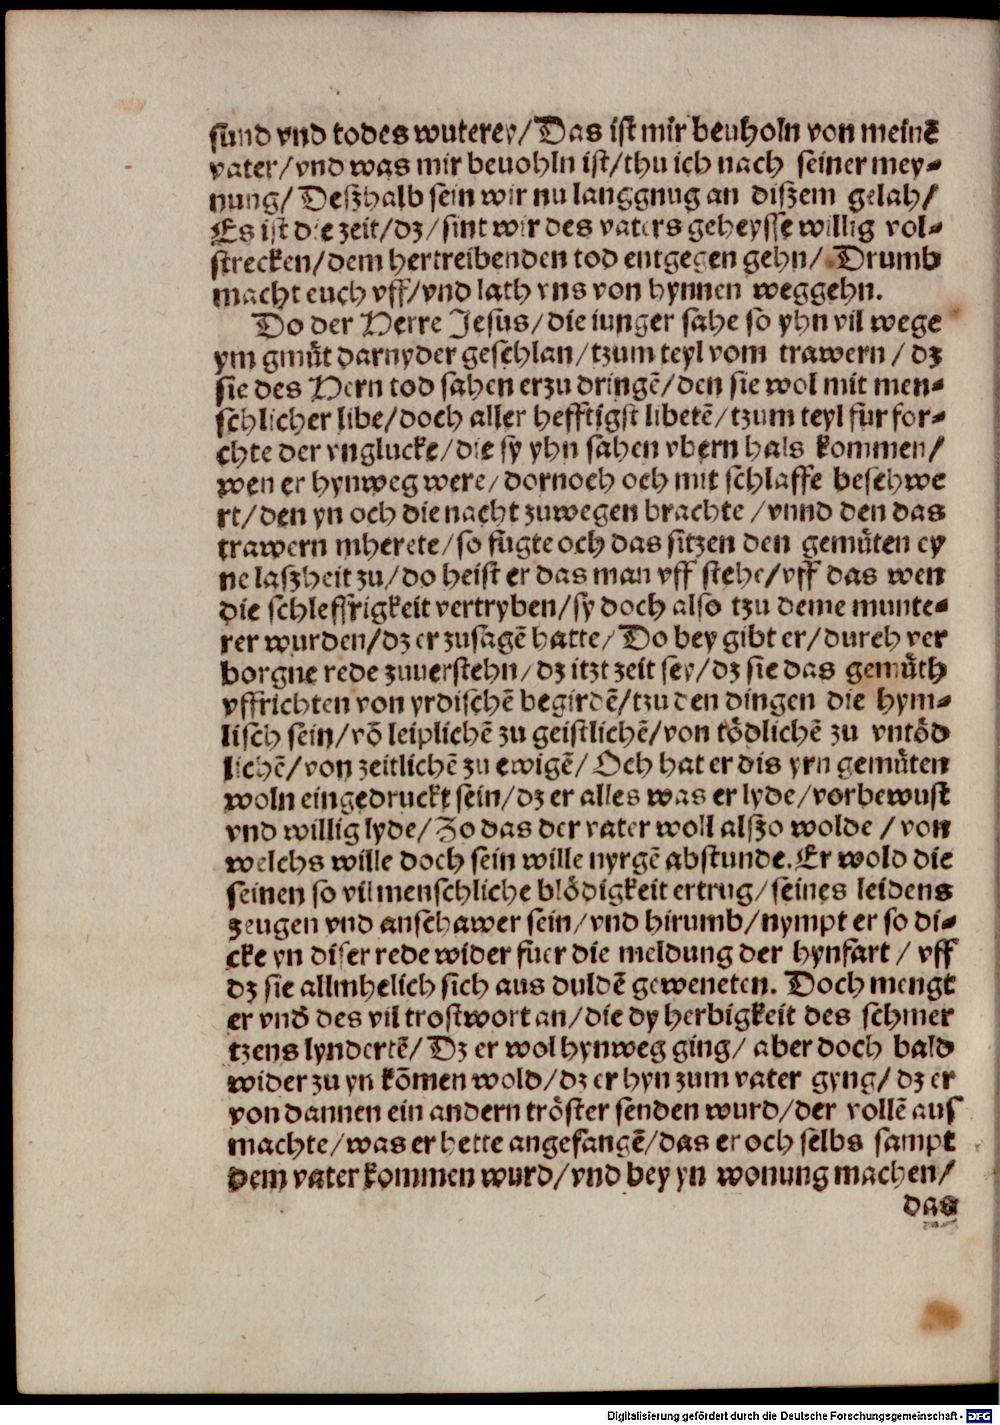 sund vnd todes wuterey/Das ist mir beuholn von meinẽ
vater/vnd was mir beuohln ist/thu ich nach seiner mey-
nung/ Deßhalb sein wir nu langgnug an dißem gelah/
Es ist die zeit/dz/sint wir des vaters geheysse willig vol-
strecken/dem hertreibenden tod entgegen gehn/ Drumb
macht euch vff/vnd lath vns von hynnen weggehn.
Do der Herre Jesus/die iunger sahe so yhn vil wege
ym gmüt darnyder geschlan/tzum teyl vom trawern / dz
sie des Hern tod sahen erzu dringẽ/den sie wol mit men-
schlicher libe/doch aller hefftigst libetẽ/tzum teyl fur for-
chte der vnglucke/die sy yhn sahen vbern hals kommen/
wen er hynweg were/dornoch och mit schlaffe beschwe
rt/den yn och die nacht zuwegen brachte /vnnd den das
trawern mherete/so fugte och das sitzen den gemüten ey
ne laszheit zu/do heist er das man vff stehe/vff das wen
die schleffrigkeit vertryben/sy doch also tzu deme munte-
rer wurden/dz er zusagẽ hatte/Do bey gibt er/durch ver
borgne rede zuuerstehn/dz itzt zeit sey/dz sie das gemüth
vffrichten von yrdischẽ begirdẽ/tzu den dingen die hym-
lisch sein/võ leiplichẽ zu geistlichẽ/von tödlichẽ zu vntöd
lichẽ/von zeitlichẽ zu ewigẽ/ Och hat er dis yrn gemüten
woln eingedruckt sein/dz er alles was er lyde/vorbewust
vnd willig lyde/Zo das der vater woll alßo wolde / von
welchs wille doch sein wille nyrgẽ abstunde.Er wold die
seinen so vil menschliche blödigkeit ertrug/seines leidens
zeugen vnd anschawer sein/vnd hirumb/nympt er so di-
cke yn diser rede wider fuer die meldung der hynfart / vff
dz sie allmhelich sich aus duldẽ geweneten. Doch mengt
er vnd des vil trostwort an/die dy herbigkeit des schmer
tzens lyndertẽ/Dz er wol hynweg ging/ aber doch bald
wider zu yn kõmen wold/dz er hyn zum vater gyng/dz er
von dannen ein andern tröster senden wurd/der vollẽ aus
machte/was er hette angefangẽ/das er och selbs sampt
dem vater kommen wurd/vnd bey yn wonung machen/
das
Digitalisierung gefördert durch die Deutsche Forschungsgemeinschaft - DFG